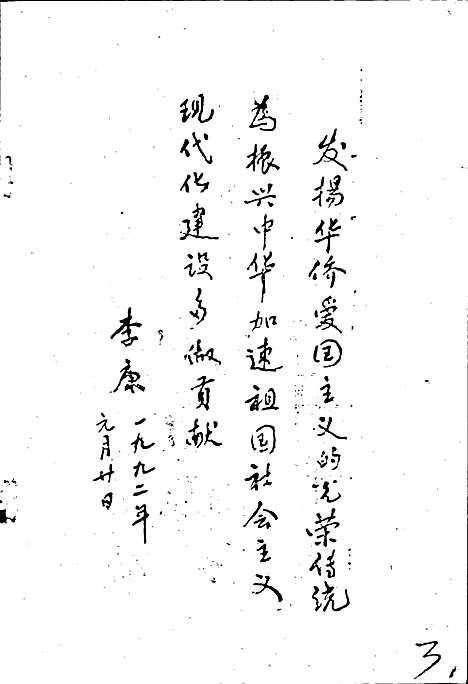 发扬华侨爱国主义的光荣传统
为振兴中华加速祖国社会主义
现代化建设多做贡献
李康
一九九二年
元月廿日
3